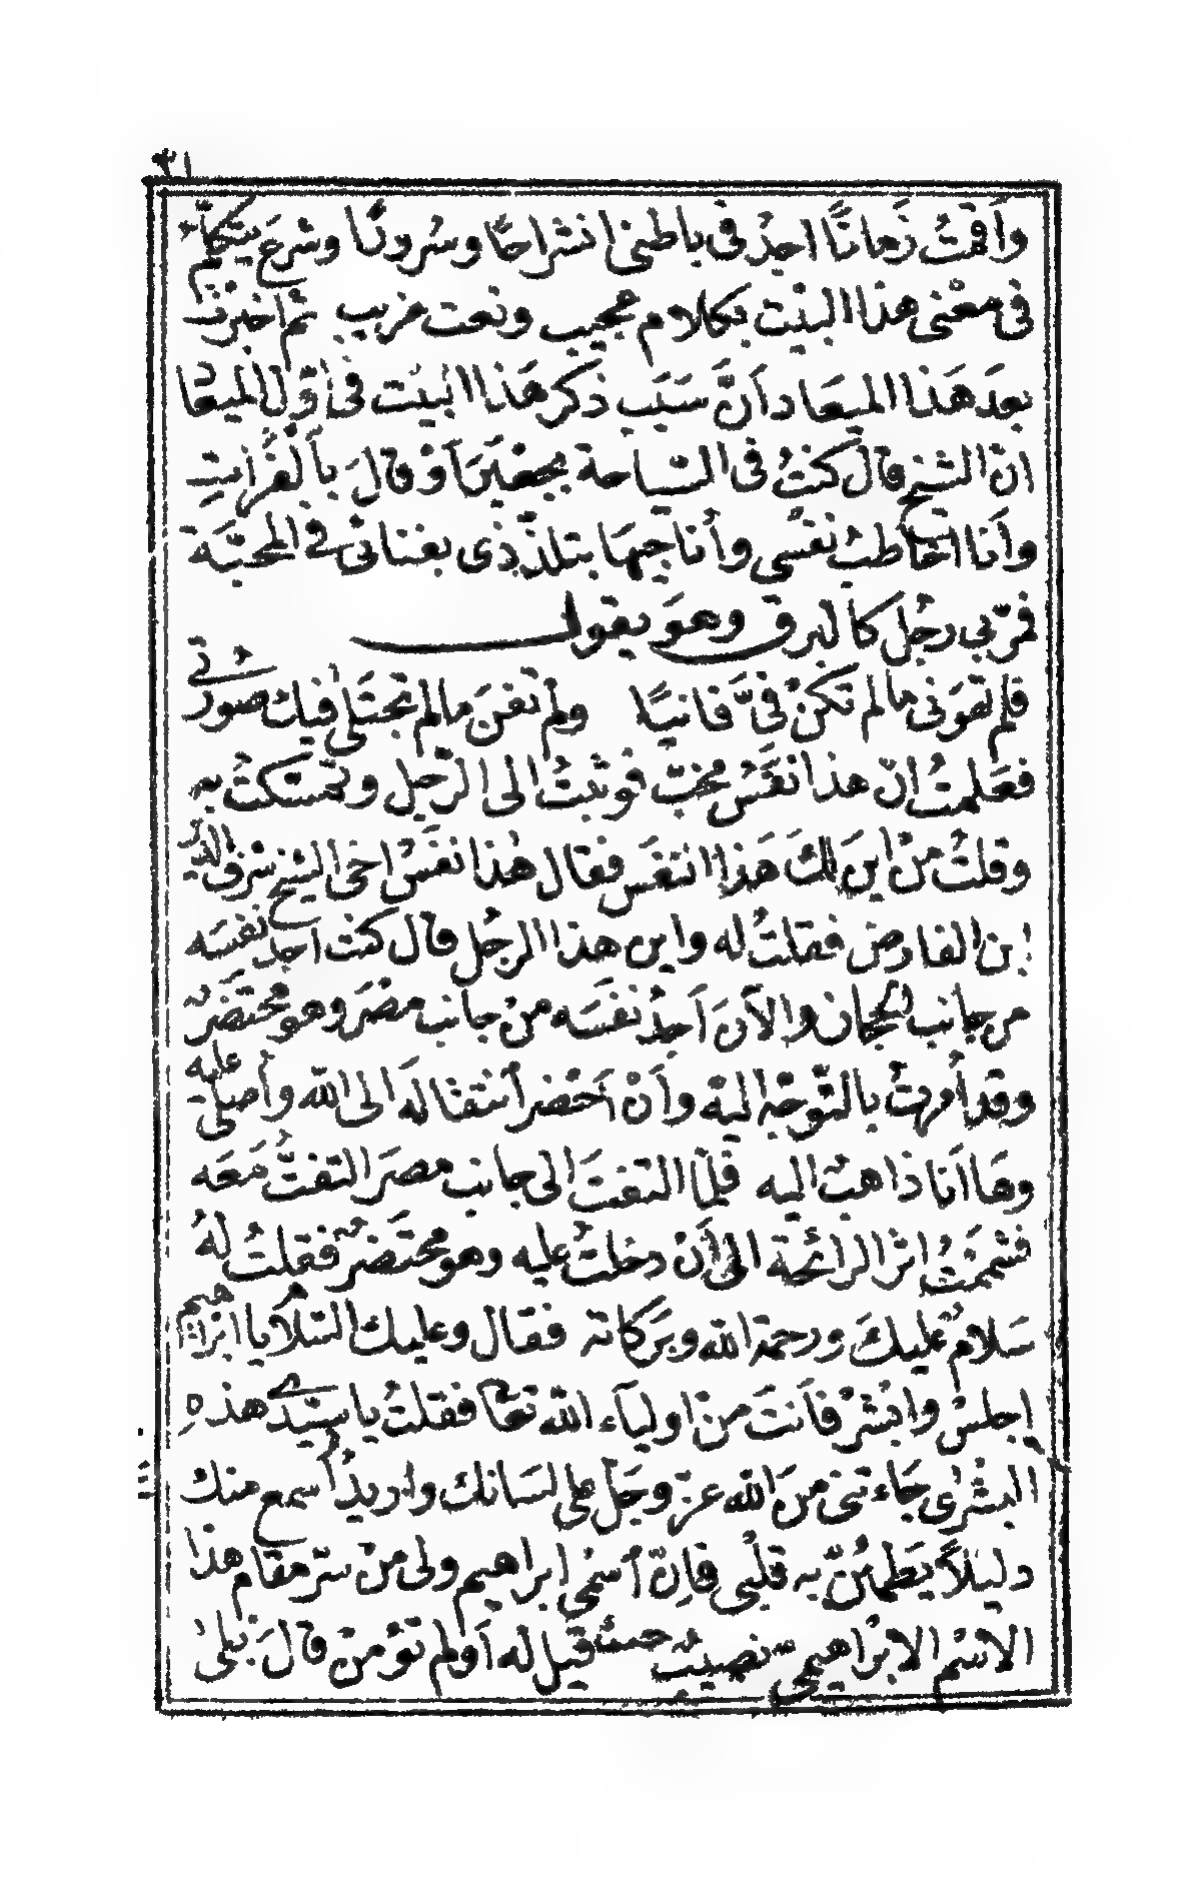 ٣١
وأقمتُ زَمانًا اجدُ فى باطنى انشراحًا وسُرورًا وشرعَ يتكلم
فى معْنى هذا البيْت بكلام عجيب ونعت غريب ثم اخبرنى
بعدَ هَذا الميعَاد اَنَّ سَبَب ذكر هَذا البَيْت فى أوّل الميعا
انّ الشيخ قال كنتُ فى السّياحة بجعْبَرَ اَوْ قالَ بالفُراتِ
وأنا اخاطبُ نفسي وأناجيهَا بتلذّذى بفنائى فى المحبّة
فمرّ بي رجُل كالبرق وهوَ يقول
فلم تهوَنى مالم تكنْ فىَّ فانيًا ولم تفنَ مالم تجتلى فيك صورتى
فعَلمتُ انّ هذا نفَسُ محبّ فوثبتُ الى الرّجل وتمسّكتُ به
وقلتُ منْ اينَ لكَ هَذا النفَس فقال هٰذا نفَسُ اخى الشيخ شرف الدّين
ابن الفارض فقلتُ له واين هذا الرجُل قال كنت اجدُ نفسَه
من جانب الحجاز والآنَ اَجدُ نفسَه منْ جانب مصْرَ وهو محتضَرٌ
وقد أمرتُ بالتّوجّه اليْه وأنْ اَحْضر أنتقاله الى اللّه وأصلّى عليه
وهَا اَنا ذاهبٌ اليه فلمّا التفتَ الى جانب مصرَ التفتُّ مَعَه
فشممْتُ اثر الرائحة الى اَنْ دخلتُ عليه وهو محتَضرٌ فقلتُ لهُ
سَلامُ عليكَ ورحمة الله وبَركاته فقال وعليك السّلام يا ابراهيم
اجلسْ وابْشرْ فاَنتَ منْ اوليَآء اللّه تعالى فقلتُ يا سيّدى هذهِ
البشْرى جَاءتنى منَ اللّه عزّ وجَل على لسَانك واريدُ اسمع منك
دليْلاً يَطمئنّ به قلبْى فاِنّ اسْمى ابراهيم ولى منْ سرّ مَقام هذا
الاسْم الابراهيمى نصيبٌ حيثُ قيل له اَولم تؤمنْ قالَ بَلى